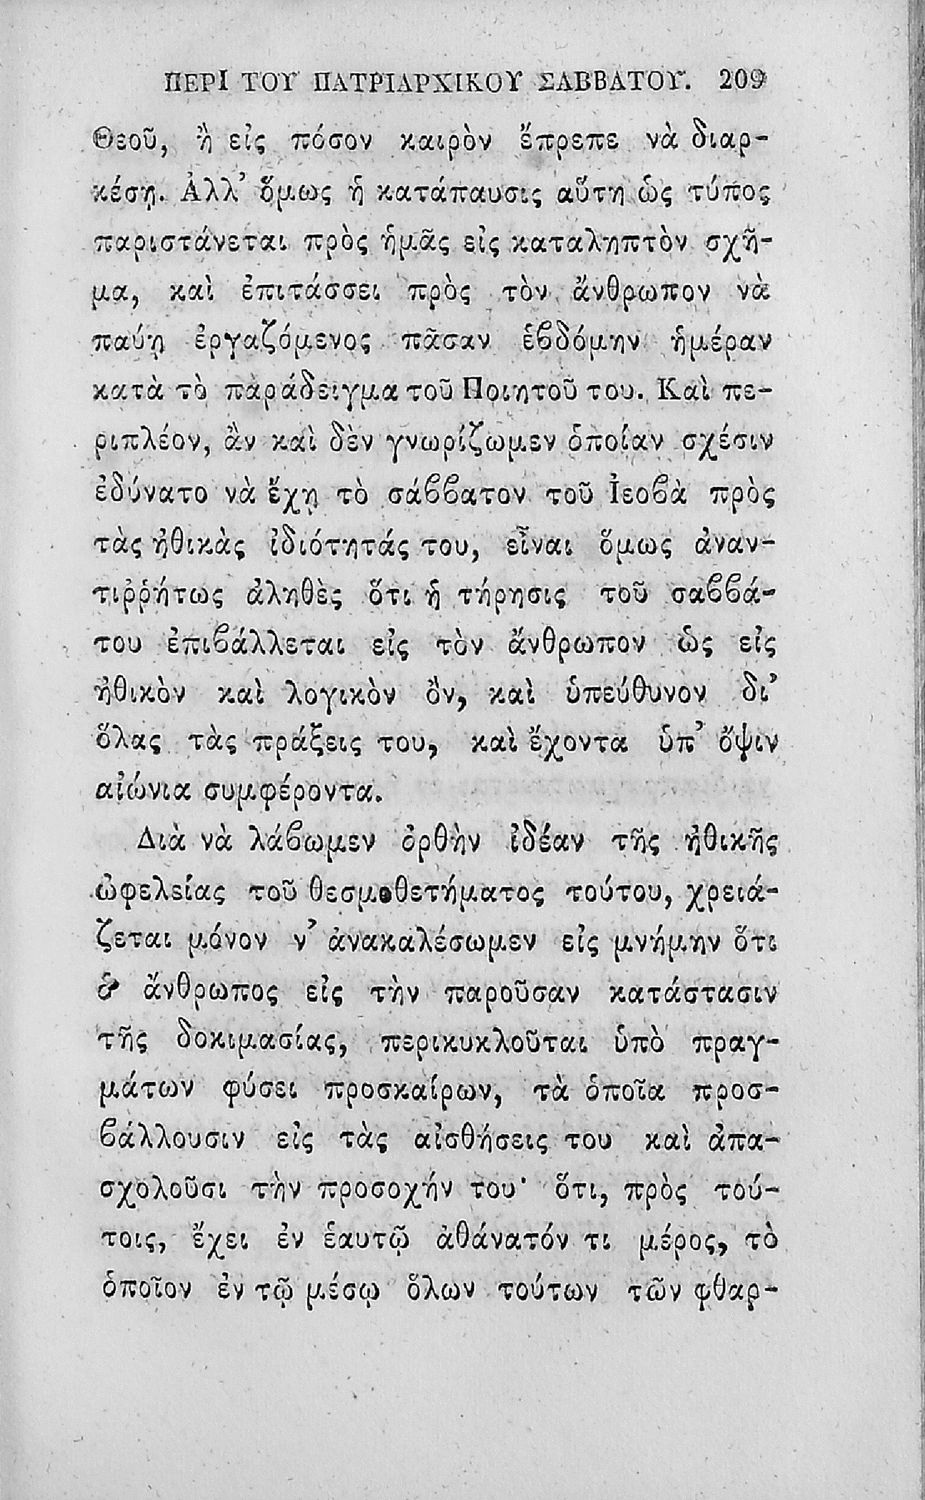 ΠΕΡΙ ΤΟΥ ΠΑΤΡΙΑΡΧΙΚΟΥ ΣΑΒΒΑΤΟΥ. 209
Θεοῦ, ἢ εἰς πόσον καιρὸν ἔπρεπε νὰ διαρ-
κέσῃ. Ἀλλ’ ὅμως ἡ κατάπαυσις αὕτη ὡς τύπος
παριστάνεται πρὸς ἡμᾶς εἰς καταληπτὸν σχῆ-
μα, καὶ ἐπιτάσσει πρὸς τὸν ἄνθρωπον νὰ
παύῃ ἐργαζόμενος πᾶσαν ἑβδόμην ἡμέραν
κατὰ τὸ παράδειγμα τοῦ Ποιητοῦ του. Καὶ πε-
ριπλέον, ἂν καὶ δὲν γνωρίζωμεν ὁποίαν σχέσιν
ἐδύνατο νὰ ἔχῃ τὸ σάββατον τοῦ Ἰεοβὰ πρὸς
τὰς ἠθικὰς ἰδιότητάς του, εἶναι ὅμως ἀναν-
τιῤῥήτως ἀληθὲς ὅτι ἡ τήρησις τοῦ σαββά-
του ἐπιβάλλεται εἰς τὸν ἄνθρωπον ὡς εἰς
ἠθικὸν καὶ λογικὸν ὂν, καὶ ὑπεύθυνον δι’
ὅλας τὰς πράξεις του, καὶ ἔχοντα ὑπ’ ὄψιν
αἰώνια συμφέροντα.
Διὰ νὰ λάβωμεν ὀρθὴν ἰδέαν τῆς ἠθικῆς
ὠφελείας τοῦ θεσμοθετήματος τούτου, χρειά-
ζεται μόνον ν’ ἀνακαλέσωμεν εἰς μνήμην ὅτι
ὁ ἄνθρωπος εἰς τὴν παροῦσαν κατάστασιν
τῆς δοκιμασίας, περικυκλοῦται ὑπὸ πραγ-
μάτων φύσει προσκαίρων, τὰ ὁποῖα προσ-
βάλλουσιν εἰς τὰς αἰσθήσεις του καὶ ἀπα-
σχολοῦσι τὴν προσοχήν του· ὅτι, πρὸς τού-
τοις, ἔχει ἐν ἑαυτῷ ἀθάνατόν τι μέρος, τὸ
ὁποῖον ἐν τῷ μέσῳ ὅλων τούτων τῶν φθαρ-